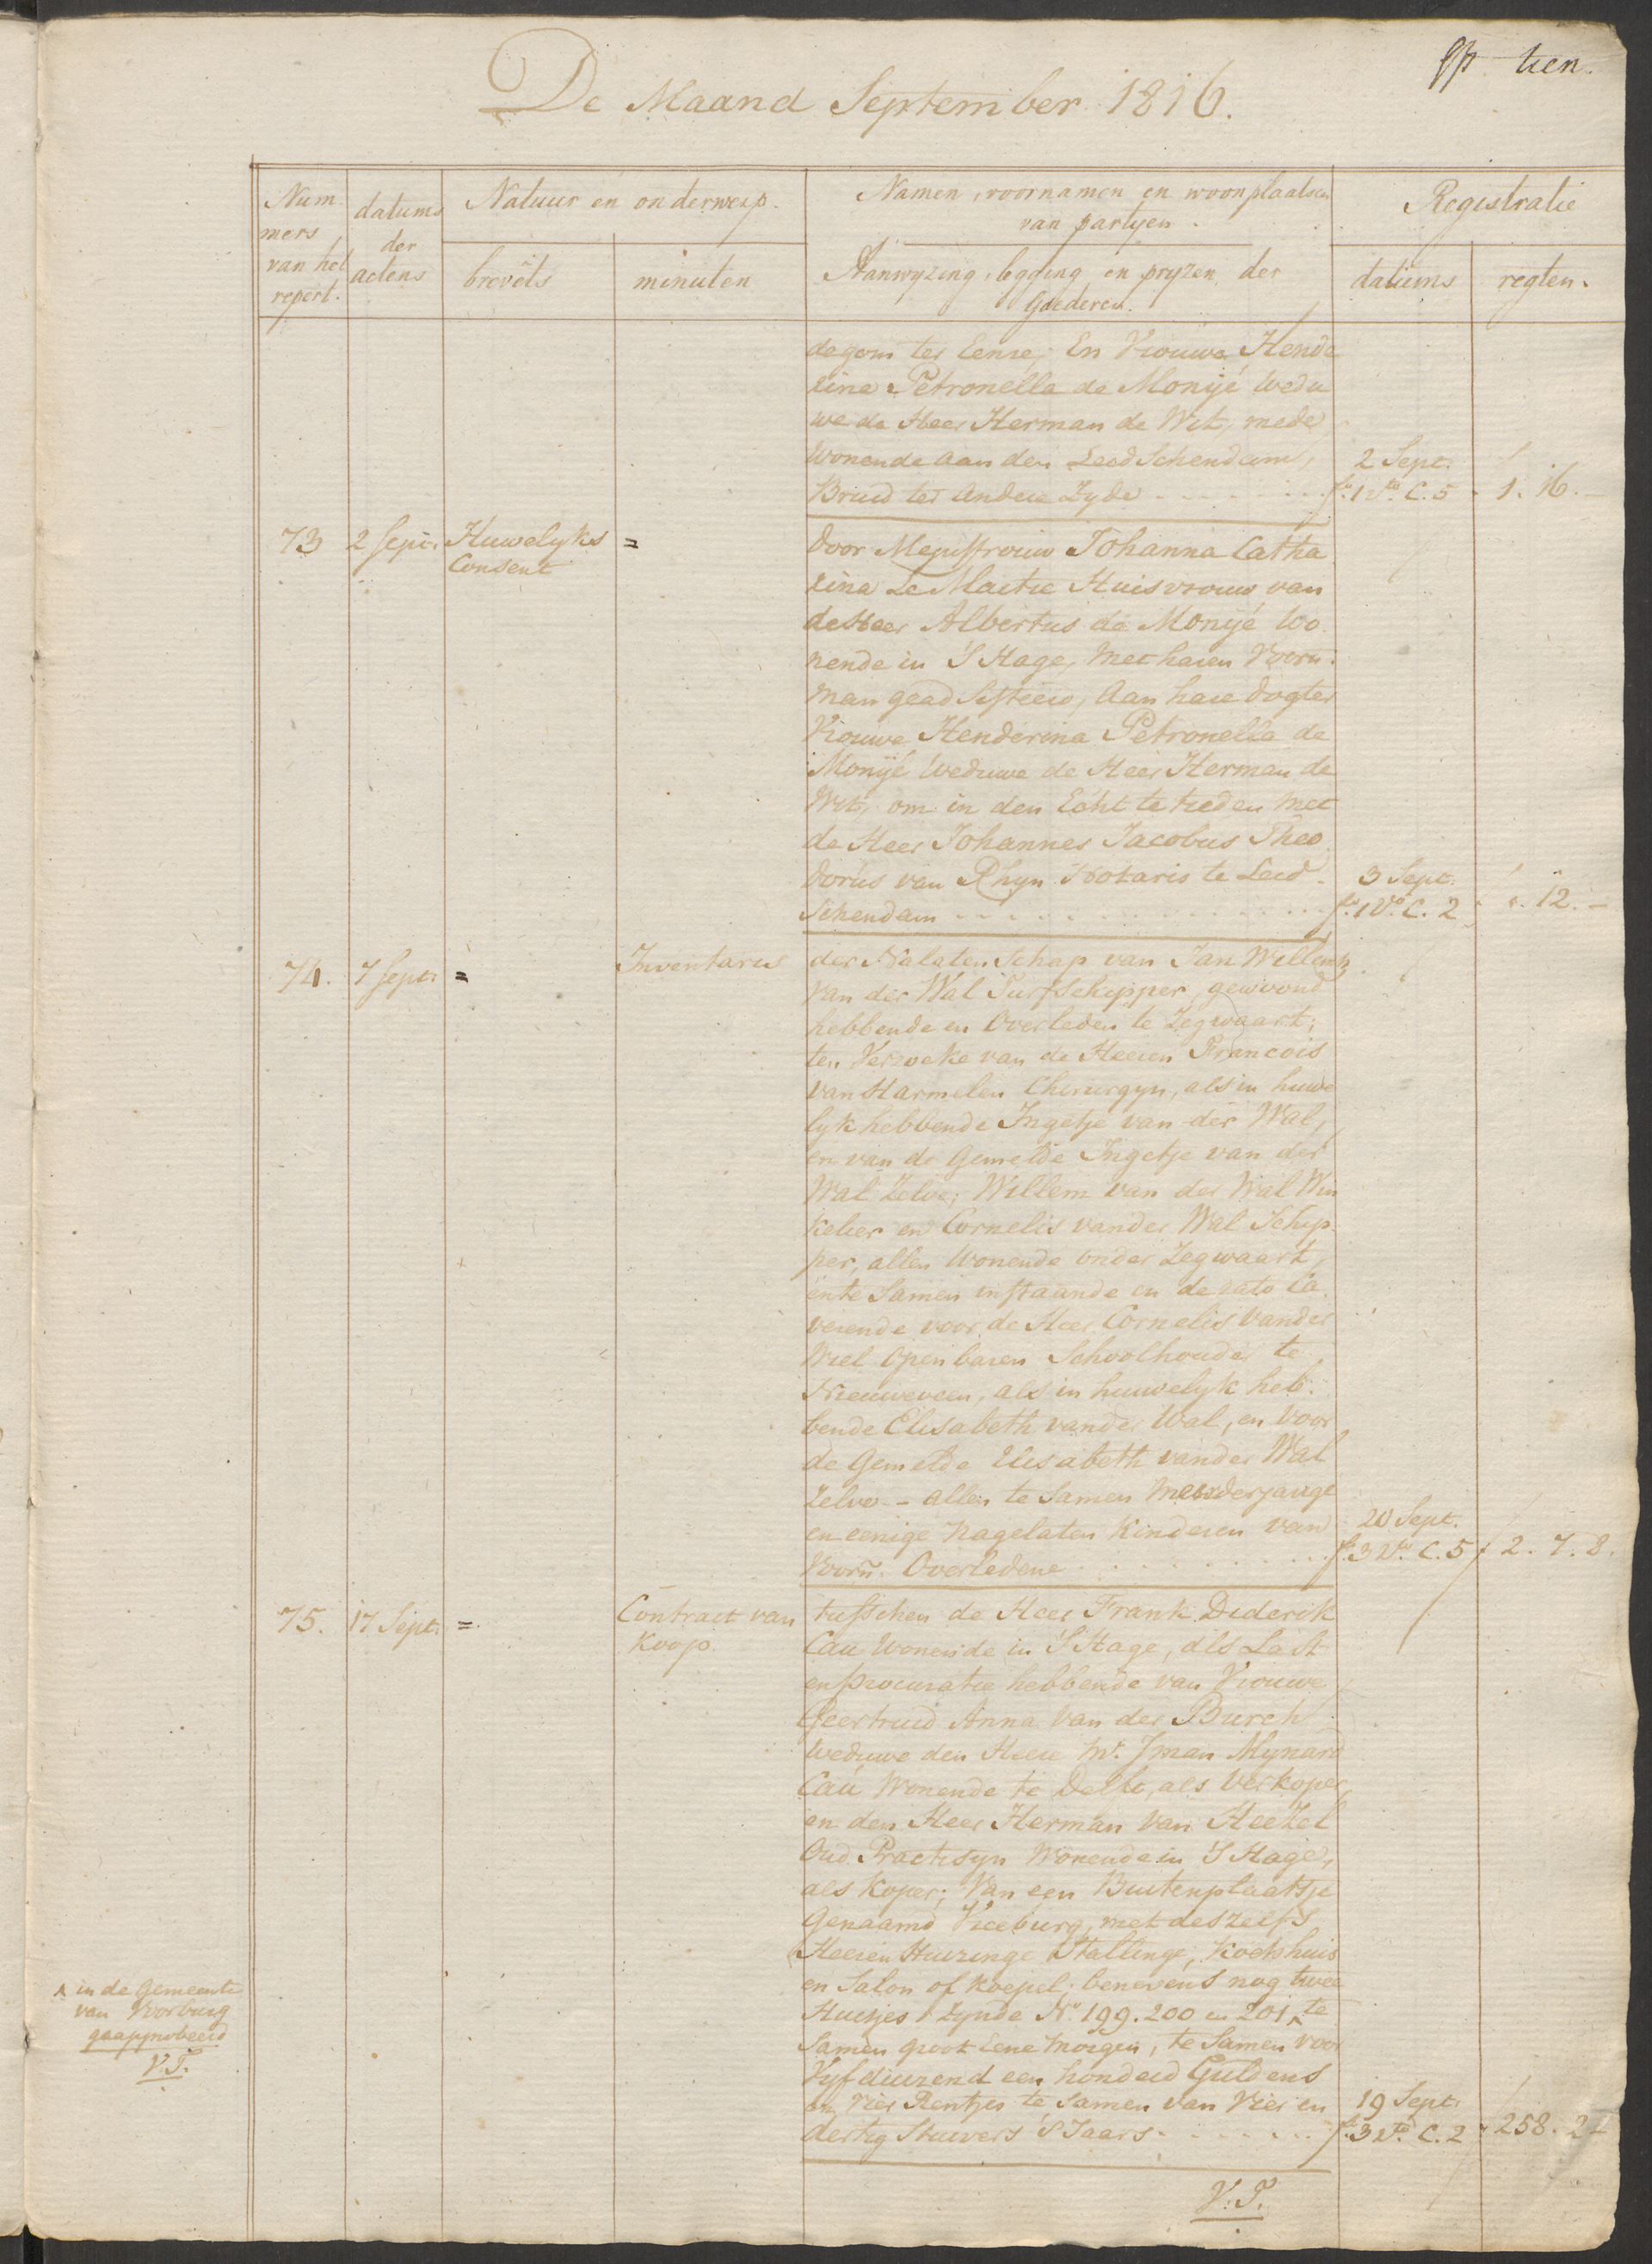 tien.
De Maand September 1816.
Num
mers
van het
repert.
datums
der
actens
Natuur en onderwerp.
brevêts
minuten
Namen, voornamen en woonplaatsen
van partyen.
Aanwyzing, legging en pryzen der
Goederen.
Registratie
datums
regten.
degom ter Eenre, En Vrouwe Hende
rina Petronella de Monijé wedu
we de Heer Herman de Wit, mede
wonende aan den Leedschendam,
Bruid ter andere Zyde
2 Sept.
fo. 1 Vo. C. 5
1. 16. –
73
2 Sept.
Huwelyks
Consent
=
door Mejuffrouw Johanna Catha
rina Le Maitre Huisvrouw van
de Heer Albertus de Monijé wo
nende in S Hage, met haren voorn.
man geadsisteerd, aan hare dogter
Vrouwe Henderina Petronella de
Monijé weduwe de Heer Herman de
Wit, om in den Echt te treden met
de Heer Johannes Jacobus Theo
dorus van Rhyn Notaris te Leed
schendam
3 Sept.
fo. 1 Vo. C. 2
". 12. –
74.
7 Sept.
=
Inventaris
der Nalatenschap van Jan Willemsz
van der Wal Turfschipper, gewoond
hebbende en Overleden te Zegwaart;
ten Verzoeke van de Heeren Francois
van Harmelen Chirurgyn, als in huwe
lyk hebbende Ingetje van der Wal,
en van de gemelde Ingetje van der
Wal Zelve; Willem van der Wal Win
kelier en Cornelis van der Wal Schip
per, allen wonende onder Zegwaart,
en te Samen instaande en de rato Ca
verende voor de Heer Cornelis van der
Wiel Openbaren Schoolhouder te
Nieuweveen, als in huwelyk heb
bende Elisabeth van der Wal, en voor
de gemelde Elisabeth van der Wal
Zelve – allen te Samen meerderjarige
en eenige nagelaten Kinderen van
voorn. Overledene
20 Sept.
fo. 3 Vo. C. 5
2. 7. 8.
75.
17 Sept.
=
Contract van
Koop
tusschen de Heer Frank Diderik
Cau wonende in S Hage, als Last
en procuratie hebbende van Vrouwe
Geertruid Anna van der Burch
weduwe den Heere Mr. Iman Mynard
Cau wonende te Delft, als Verkoper,
en den Heer Herman van Heekel
Oud Practisyn wonende in S Hage,
als Koper; Van een Buitenplaatsje
genaamd Vreeburg, met deszelfs
Heeren Huizinge Stallinge, Koetshuis
en Salon of Koepel; benevens nog twee
Huisjes Zynde No. 199. 200 en 201 ^ te
Samen groot Eene morgen, te Samen voor
Vyfduizend een honderd Guldens
en Vier Rentjes te samen van Vier en
dertig Stuivers S Jaars
19 Sept.
fo. 3 Vo. C. 2
258. 2 –
^ in de Gemeente
van Voorburg
geapprobeerd
V.T.
V.T.